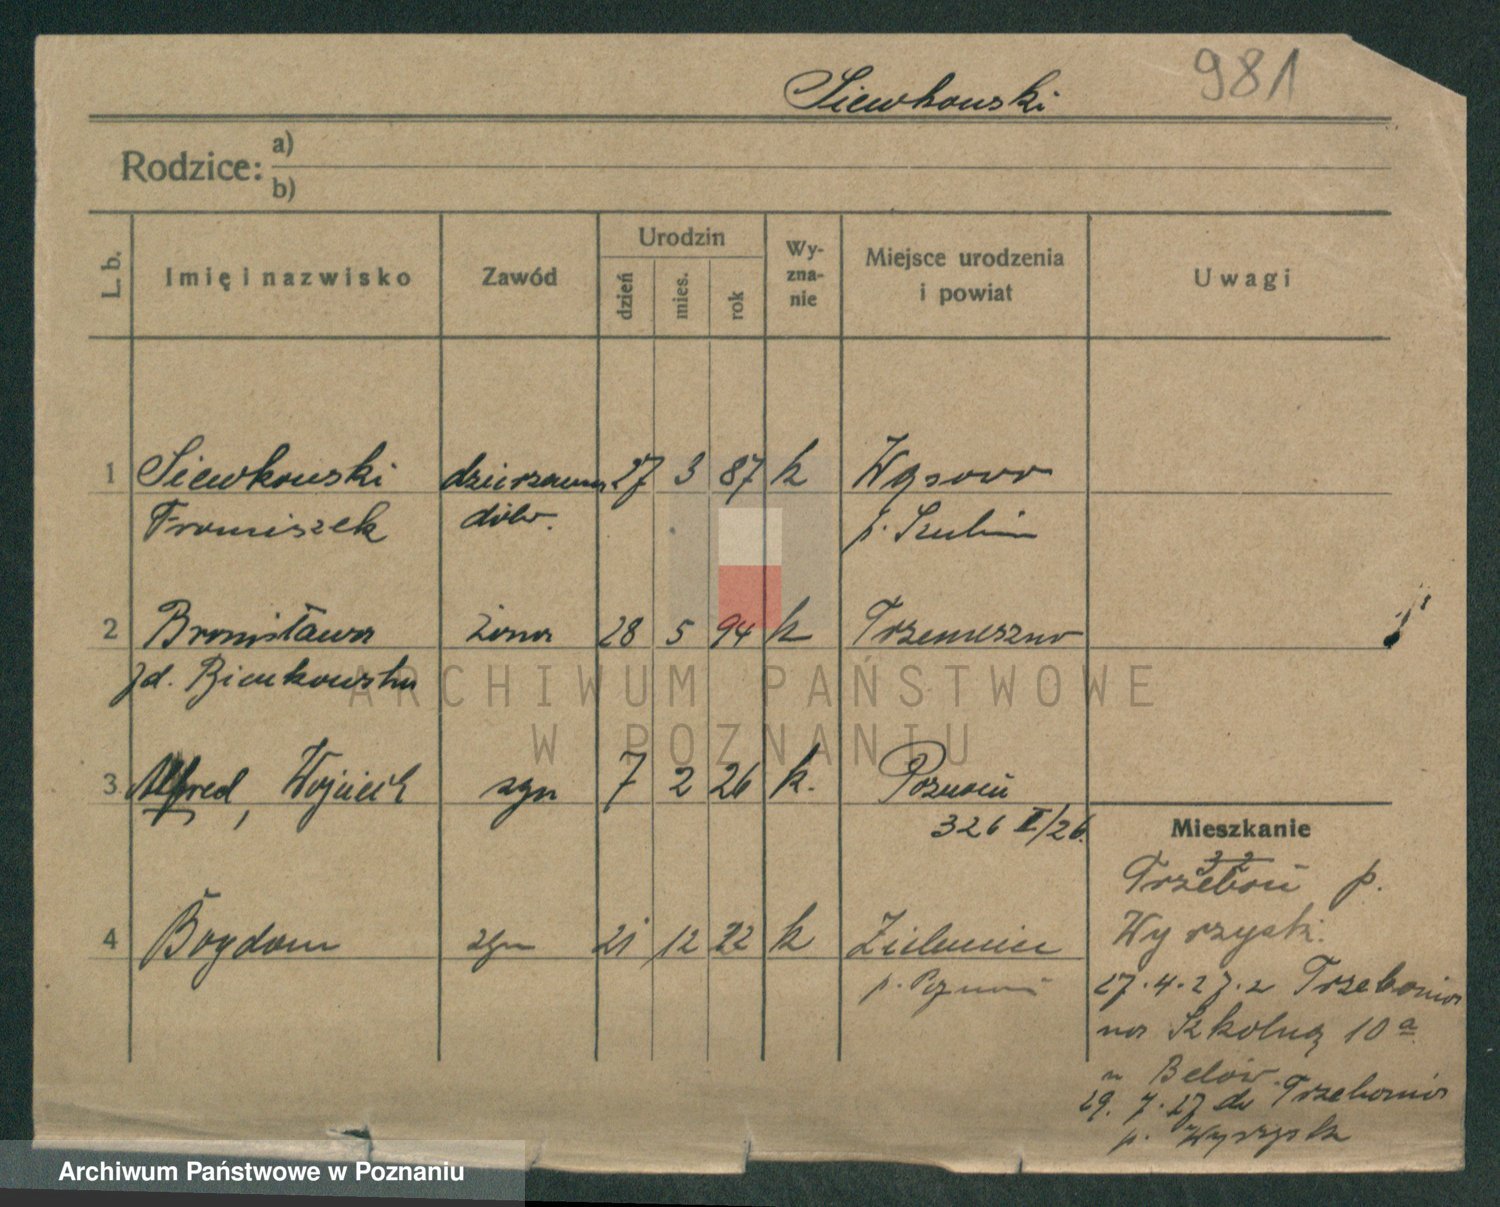 981
Siewkowski
Rodzice: a)
b)
L. b.
Imię i nazwisko
Zawód
Urodzin
dzień
mies.
rok
Wy-
zna-
nie
Miejsce urodzenia
i powiat
Uwagi
1 Siewkowski dzierzawca 27 3 87 k Wąsowo
Franciszek dóbr. p. Szubin
2 Bronisława żona 28 5 94 k Trzemeszno
zd. Bienkowska
3 Alfred, Wojciech syn 7 2 26 k. Poznań
326 II/26.
Mieszkanie
Trzeboń p.
4 Bogdan syn 21 12 22 k
Wyrzysk.
p. Poznań
27.4.27. z Trzebonia
na Szkolną 10 a
u Below.
29. 7. 27 do Trzebonia
p. Wyrzysk
ARCHIWUM PAŃSTWOWE
W POZNANIU
Archiwum Państwowe w Poznaniu